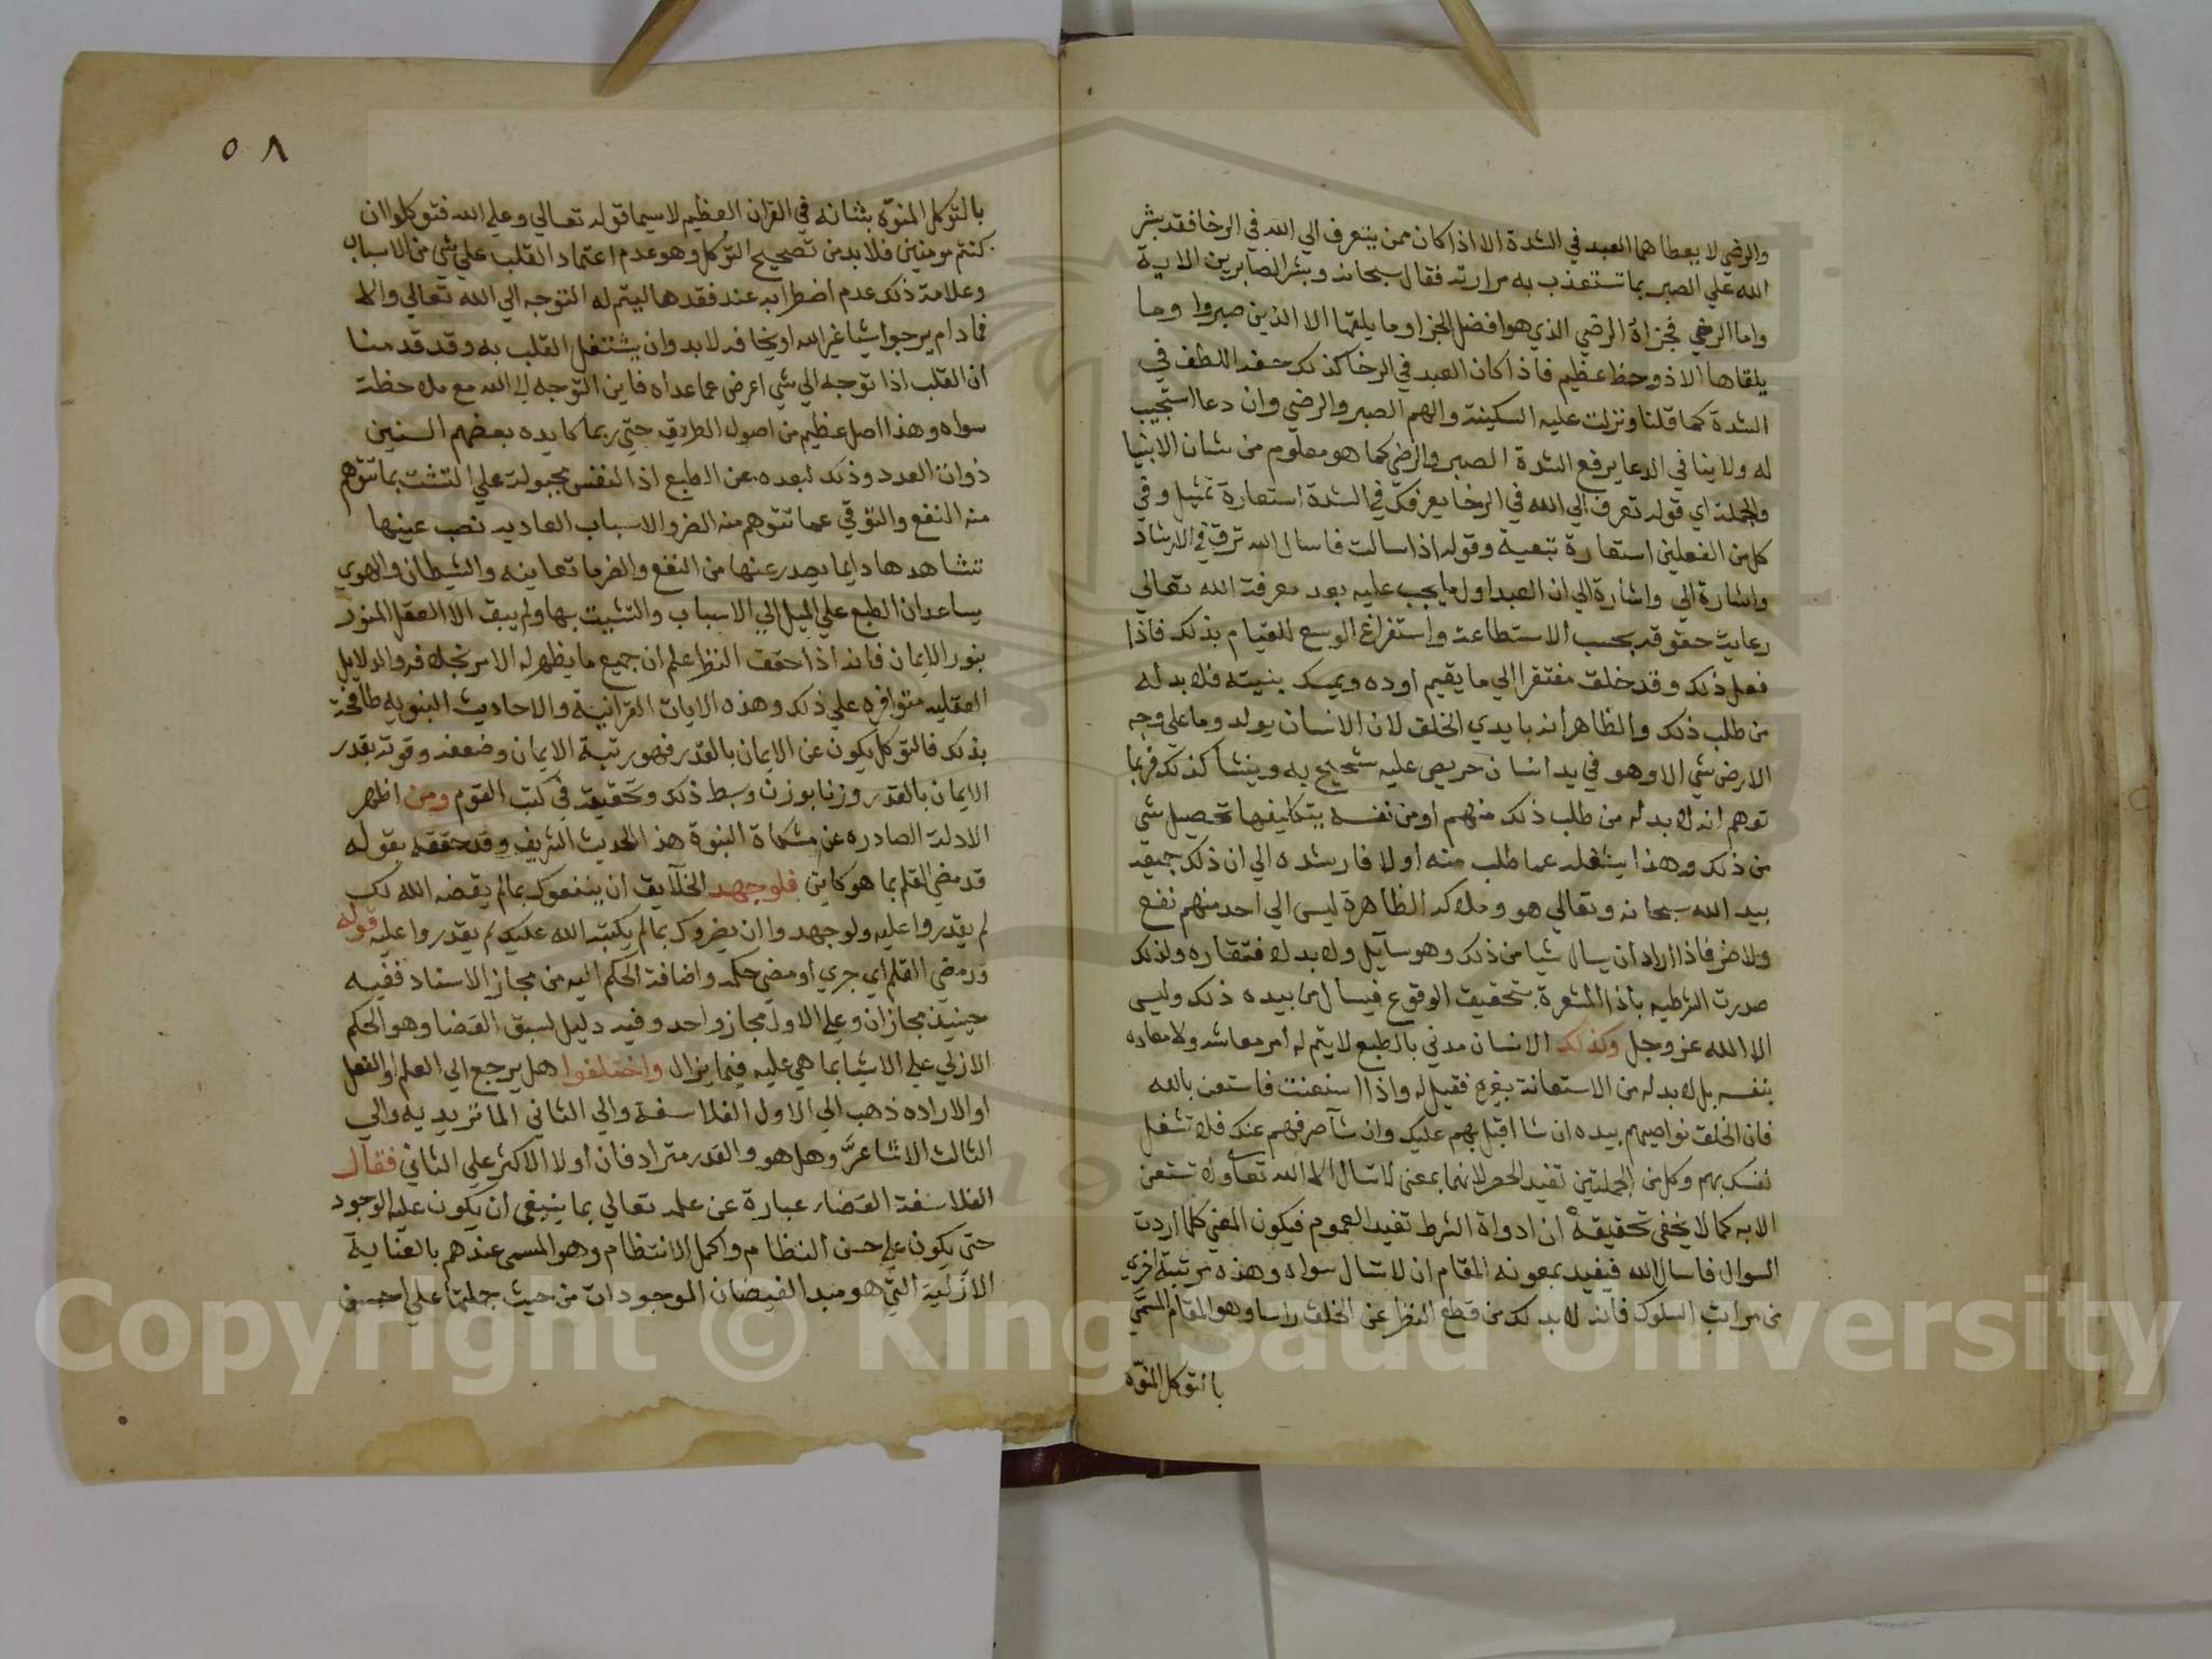 والرضي لا يعطاهما العبد في الشدة الا اذا كان ممن يتعرف الي الله في الرخا فقد بشر
الله علي الصبر بما تستعذب به مرارته فقال سبحانه وبشر الصابرين الاية
واما الرضي فجزاؤ الرضي الذي هو افضل الجزا وما يلقها الا الذين صبروا وما
يلقاها الا ذو حظ عظيم فاذا كان العبد في الرخا كذلك حفه اللطف في
الشدة كما قلنا ونزلت عليه السكينة والهم الصبر والرضي وان دعا استجيب
له ولا ينافي الدعا برفع الشدة الصبر والرضي كما هو معلوم من شان الانبيا
والجملة اي قوله تعرف الي الله في الرخا يعرفك في الشدة استعارة تمثيل وفي
كل من الفعلين استعارة تبعية وقوله اذا سالت فاسال الله ترق في الارشاد
واشارة الي واشارة الي ان العبد اول ما يجب عليه بعد معرفة الله تعالي
رعاية حقوقه بحسب الاستطاعة واستفراغ الوسع للقيام بذلك فاذا
فعل ذلك وقد خلق مفتقرا الي ما يقيم اوده ويمسك بنيته فلا بد له
من طلب ذلك والظاهر انه بايدي الخلق لان الانسان يولد وما علي وجه
الارض شي الا وهو في يد انسان حريص عليه شحيح به وينشا كذلك فربما
توهم انه لا بد له من طلب ذلك منهم او من نفسه بتكليفها تحصيل شي
من ذلك وهذا يشغله عما طلب منه اولا فارشده الي ان ذلك جميعه
بيد الله سبحانه وتعالي هو وملاكه الظاهرة ليس الي احد منهم نفع
ولا ضر فاذا اراد ان يسال شيا من ذلك وهو سايل ولا بد لافتقاره ولذلك
صدرت الشرطيه باذا المشعرة بتحقيق الوقوع فيسال من بيده ذلك وليس
الا الله عز وجل وكذلك الانسان مدني بالطبع لا يتم له امر معاشه ولا معاده
بنفسه بل لا بد له من الاستعانة بغيره فقيل له واذا استعنت فاستعن بالله
فان الخلق نواصيهم بيده ان شا اقبل بهم عليك وان شآ صرفهم عنك فلا تشغل
نفسك بهم وكل من الجملتين تفيد الحصر لانهما بمعني لا تسال الا الله تعا ولا تستعن
الا به كما لا يخفي تحقيقه ان ادواة الشرط تفيد العموم فيكون المعني كلما اردت
السوال فاسال الله فيفيد بمعونه المقام ان لا تسال سواه وهذه مرتبة اخري
من مراتب السلوك فانه لا بد لك من قطع النظر عن الخلق راسا وهو المقام المسمي
بالتوكل المنوه
٥٨
بالتوكل المنوّه بشانه في القران العظيم لا سيما قوله تعالي وعلي الله فتوكلوا ان
كنتم مومنين فلا بد من تصحيح التوكل وهو عدم اعتماد القلب علي شي من الاسباب
وعلامة ذلك عدم اضطرابه عند فقدها ليتم له التوجه الي الله تعالي والا
فما دام يرجوا شيا غير الله او يخافه لا بد وان يشتغل القلب به وقد قدمنا
ان القلب اذا توجه الي شي اعرض عما عداه فاين التوجه لي الله مع ملاحظة
سواه وهذا اصل عظيم من اصول الطريقه حتي ربما كابده بعضهم السنين
ذوات العدد وذلك لبعده عن الطبع اذ النفس مجبولة علي التشث بما تتوهم
منه النفع والتوقي عما تتوهم منه الضر والاسباب العاديه نصب عينها
تشاهدها دايما يصدر عنها من النفع والضر ما تعاينه والشيطان والهوي
يساعدان الطبع علي الميل الي الاسباب والتشبث بها ولم يبق الا العقل المنور
بنور الايمان فانه اذا حقق النظر علم ان جميع ما يظهر له الامر بخلافه والدلايل
العقليه متوافره علي ذلك وهذه الايات القرانية والاحاديث النبويه طافحة
بذلك فالتوكل يكون عن الايمان بالقدر فهو رتبة الايمان وضعفه وقوته بقدر
الايمان بالقدر وزنا بوزن وبسط ذلك وتحقيقه في كتب القوم ومن اظهر
الادلة الصادره عن مشكاة النبوة هذا الحديث الشريف وقد حققه بقوله
قد مضي القلم بما هو كاين فلو جهد الخلايق ان ينفعوك بمالم يقضه الله لك
لم يقدروا عليه ولو جهدوا ان يضروك بمالم يكتبه الله عليك لم يقدروا عليه قوله
قد مضي القلم اي جري او مضي حكمه واضافة الحكم اليه من مجاز الاسناد ففيه
حينيذ مجازان وعلي الاول مجاز واحد وفيه دليل لسبق القضا وهو الحكم
الازلي علي الاشيا بما هي عليه فيما يزال واختلفوا هل يرجع الي العلم او الفعل
او الاراده ذهب الي الاول الفلاسفة والي الثاني الماتريديه والي
الثالث الاشاعرة وهل هو والقدر مترادفان اولا الاكثر علي الثاني فقال
الفلاسفة القضاء عبارة عن علمه تعالي بما ينبغي ان يكون عليه الوجود
حتي يكون علي حسن النظام واكمل الانتظام وهو المسمي عندهم بالعناية
الازلية التي هو مبدا الفيضان الموجودات من حيث جملتها علي احسن
Copyright © King Saud University